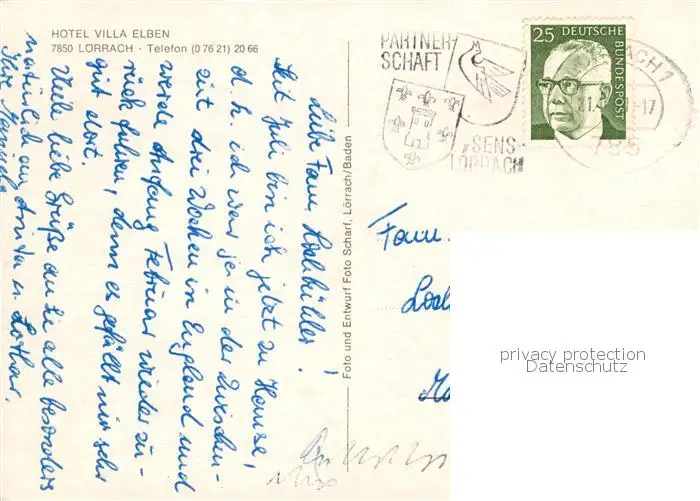 HOTEL VILLA ELBEN
7850 LÖRRACH · Telefon (0 76 21) 20 66
Liebe Fam.
Seit Juli bin ich jetzt zu Hause,
d. h. ich war ja in der Zwischen-
zeit drei Wochen in England und
werde Anfang Februar wieder zu-
rück fahren, denn es gefällt mir sehr
gut dort.
Viele liebe Grüße an Sie alle besonders
natürlich an Anita u. Lothar.
Ihre
Foto und Entwurf Foto Scharf, Lörrach/Baden
PARTNER-
SCHAFT
„SENS
LÖRRACH
25 DEUTSCHE
BUNDESPOST
-17
785
Fam.
privacy protection
Datenschutz